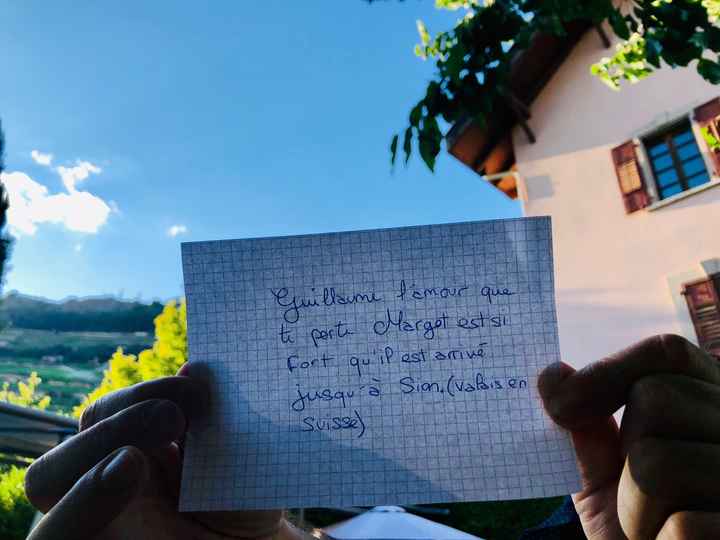 Guillaume l'amour que
te porte Margot est si
fort qu'il est arrivé
jusqu'à Sion, (valais en
suisse)